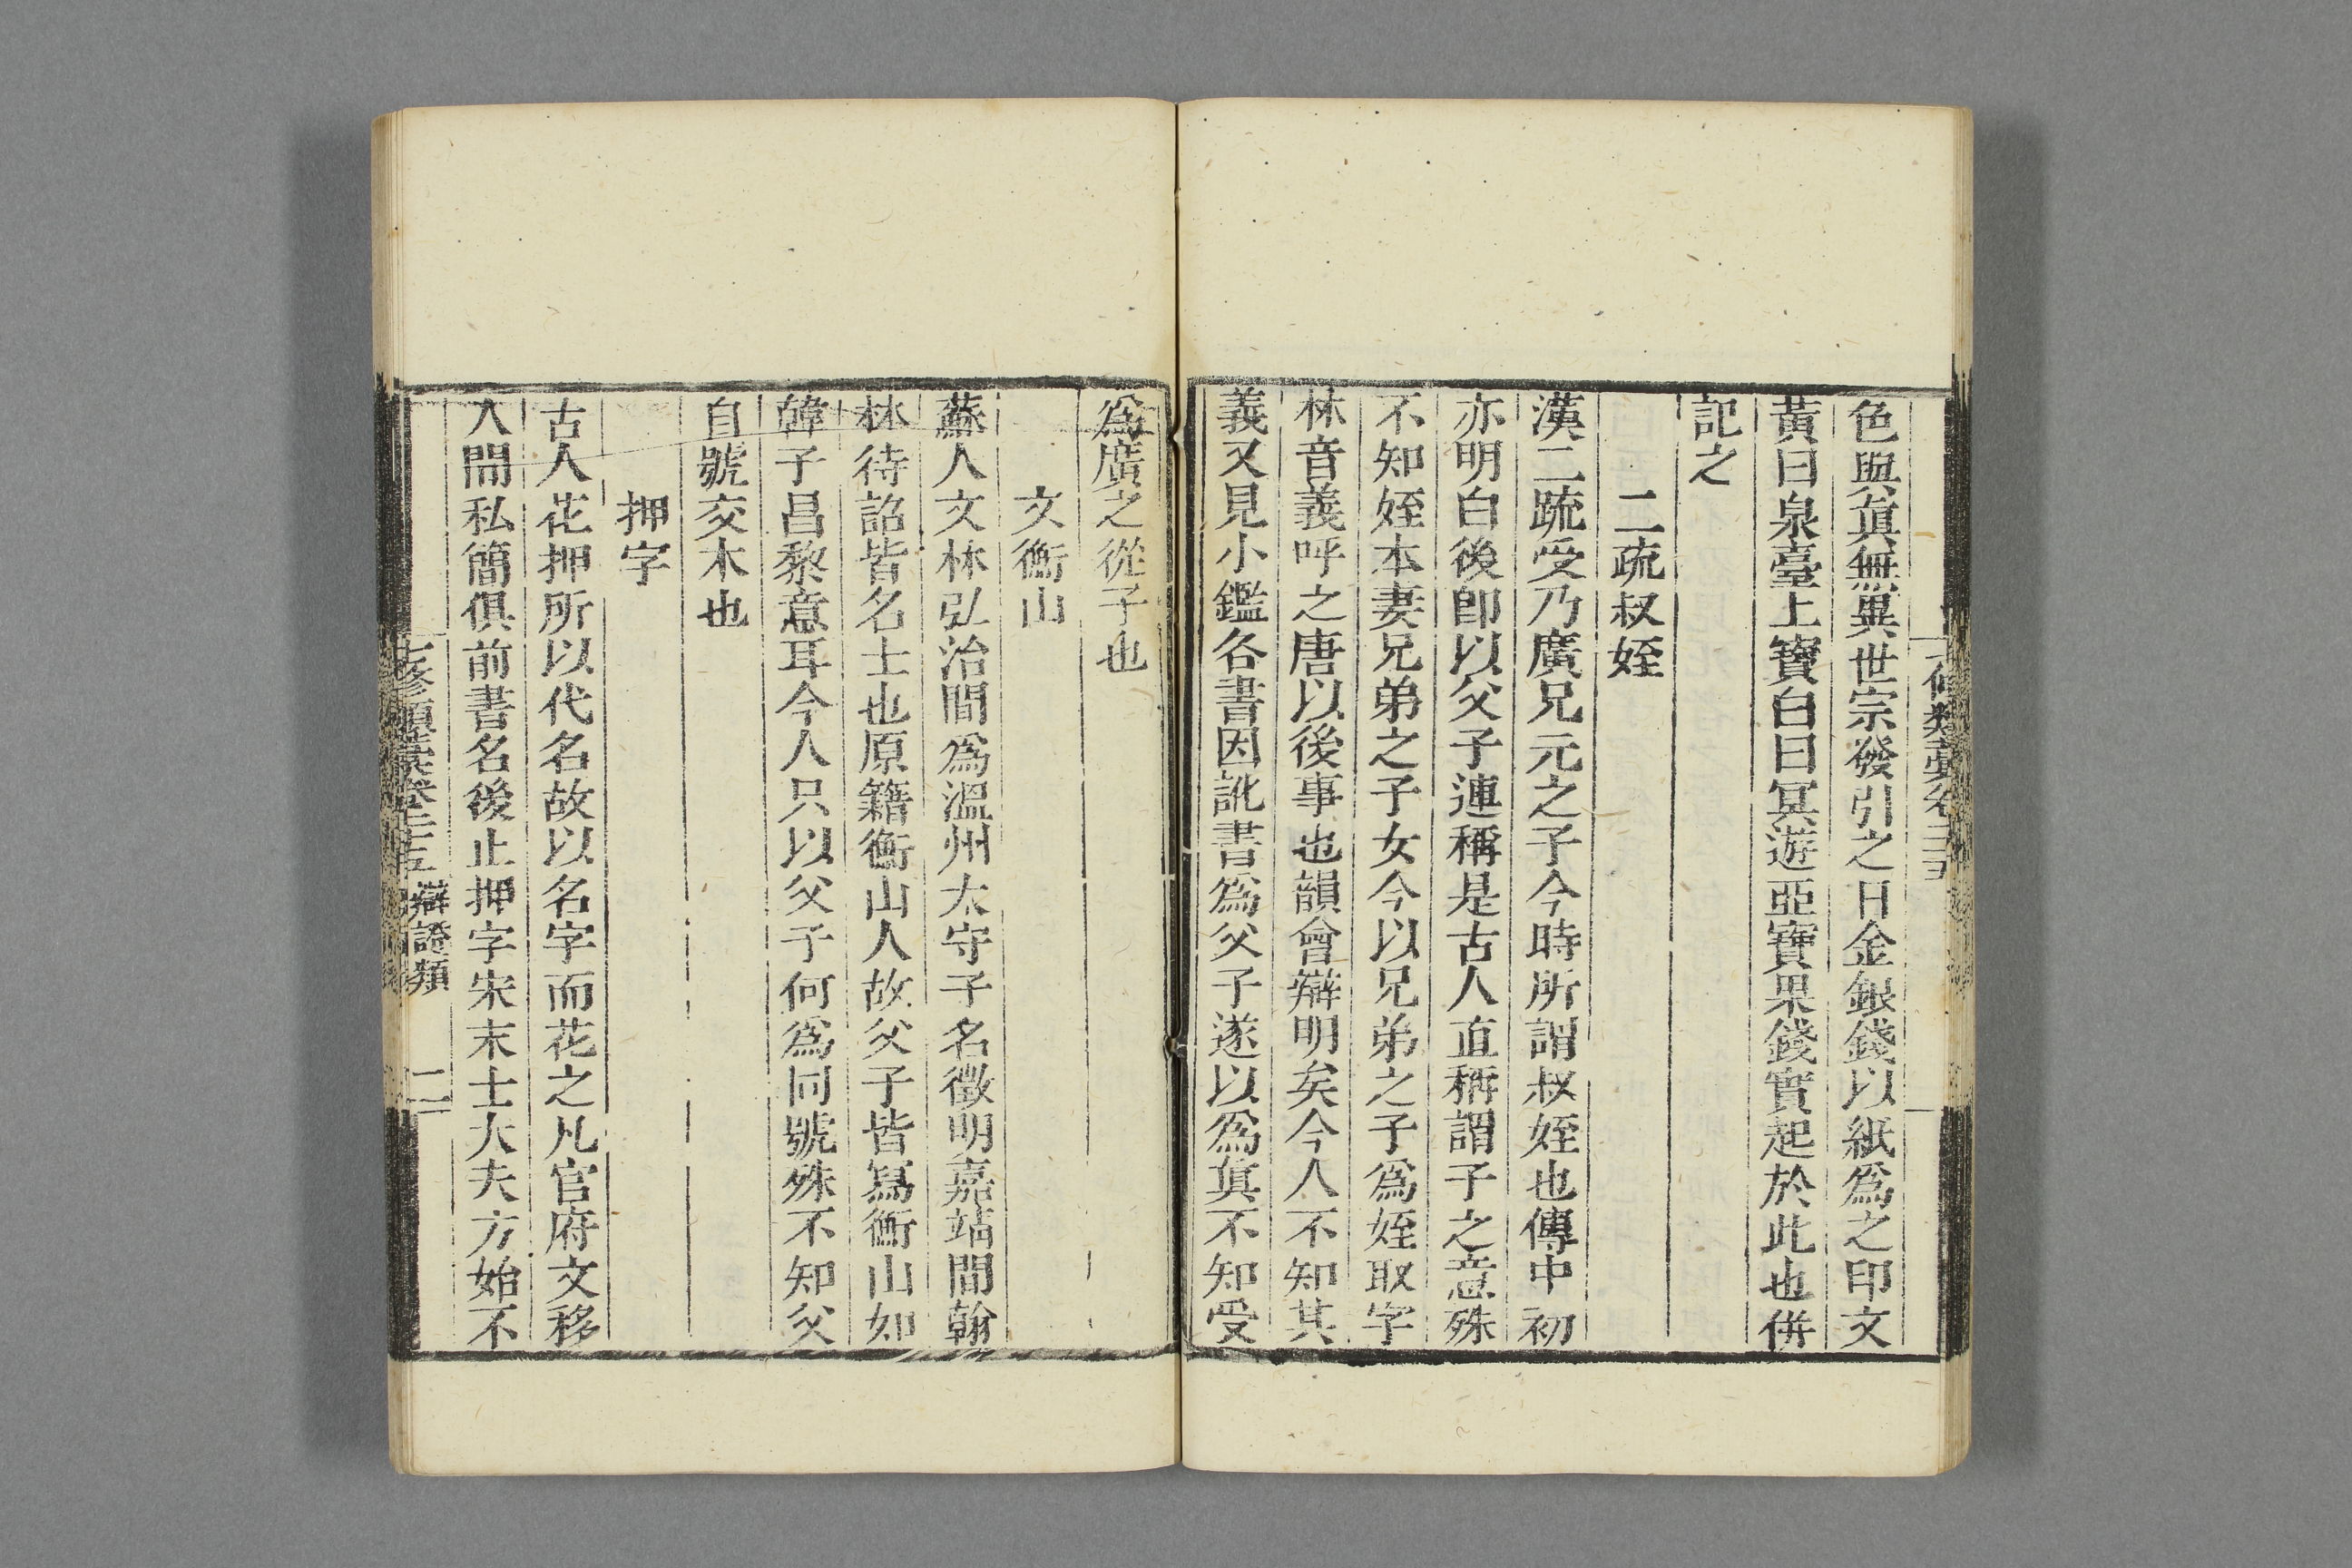 色與真無異世宗發引之日金銀錢以紙爲之印文
黃曰泉臺上寶白曰冥遊亞寶果錢實起於此也併
記之
二疏叔姪
漢二疏受乃廣兄元之子今時所謂叔姪也傳中初
亦明白後卽以父子連稱是古人直稱謂子之意殊
不知姪本妻兄弟之子女今以兄弟之子爲姪取字
林音義呼之唐以後事也韻會辯明矣今人不知其
義又見小鑑各書因訛書爲父子遂以爲真不知受
爲廣之從子也
文衡山
蘇人文林弘治間爲溫州太守子名徵明嘉靖間翰
林待詔皆名士也原籍衡山人故父子皆寫衡山如
韓子昌黎意耳今人只以父子何爲同號殊不知父
自號交木也
押字
古人花押所以代名故以名字而花之凡官府文移
人間私簡俱前書名後止押字宋末士大夫方始不
七修類藁卷二十五 辯證類 二